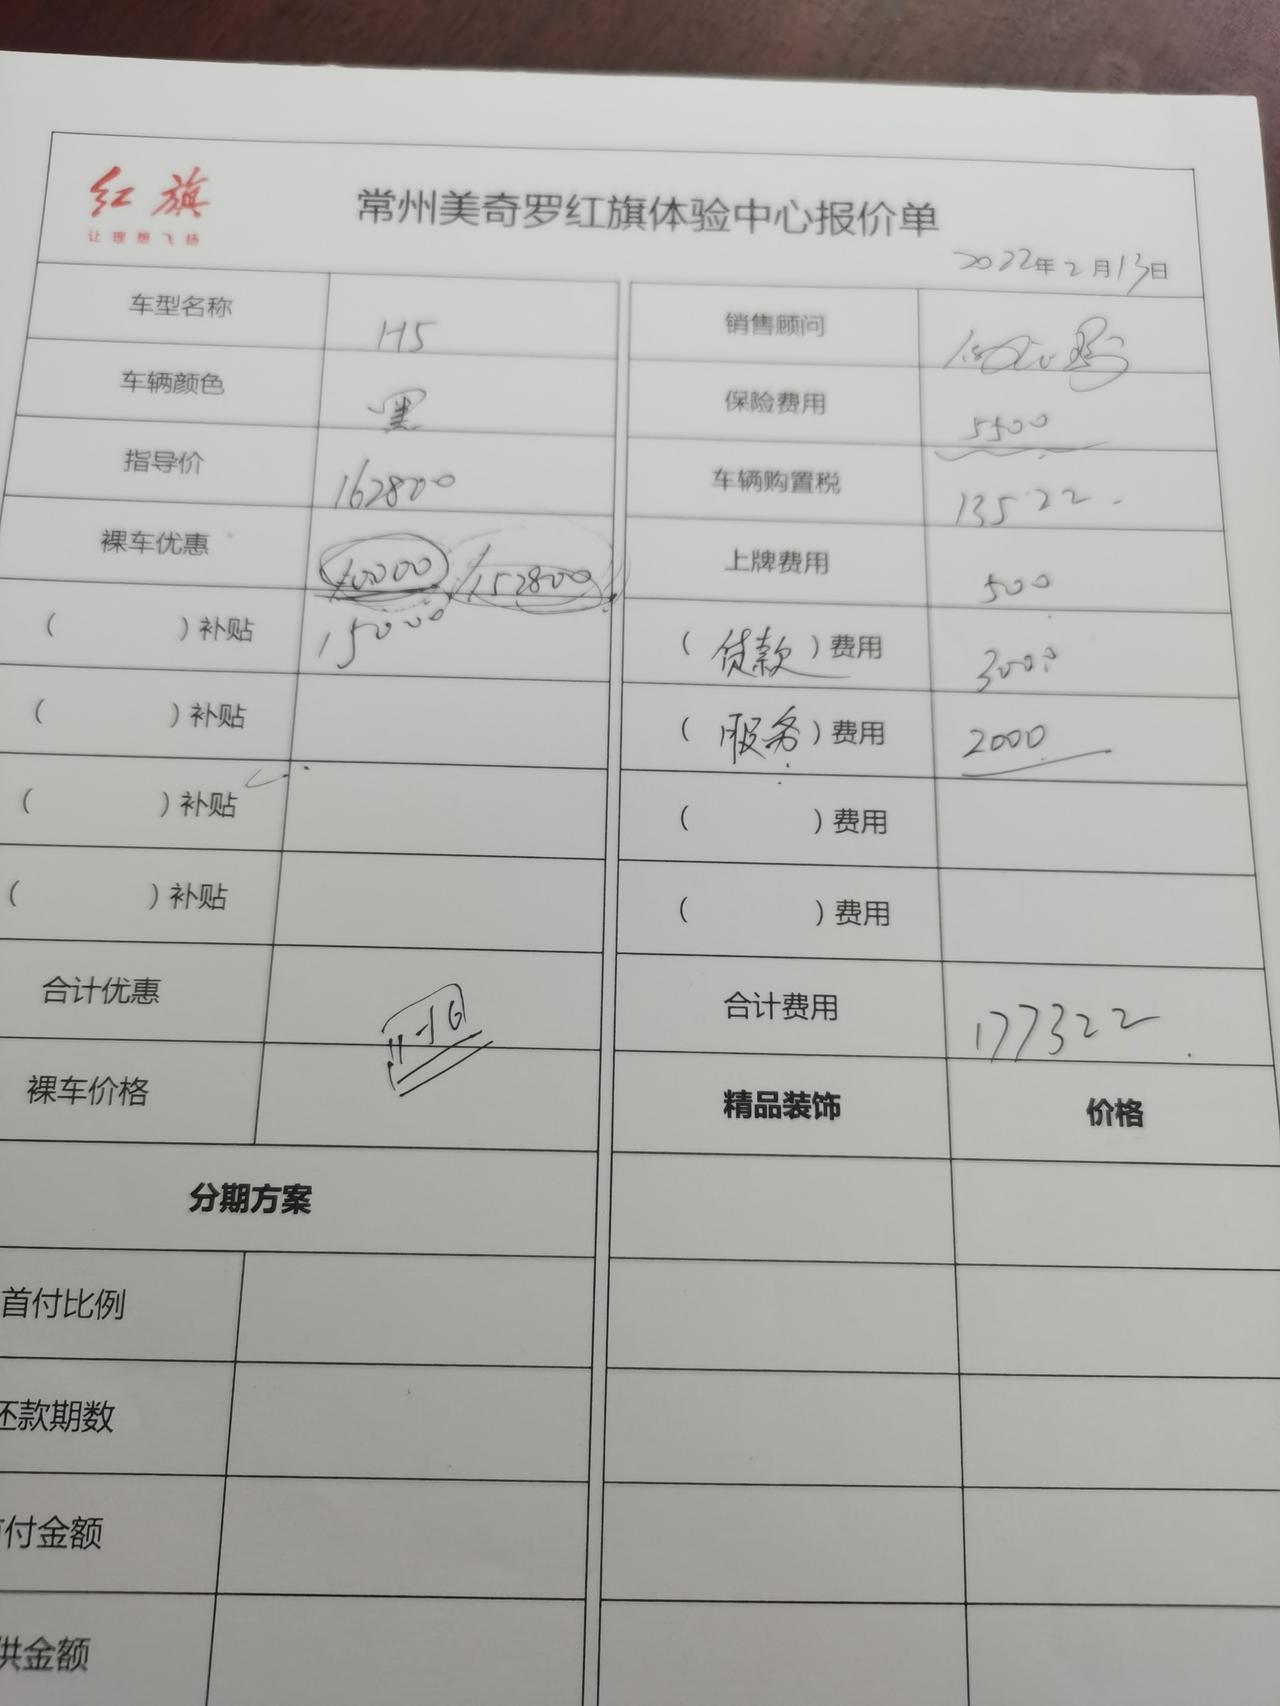 红旗
让理想飞扬
常州美奇罗红旗体验中心报价单
2022年2月13日
车型名称 H5 销售顾问
车辆颜色 黑 保险费用 5500
指导价 162800 车辆购置税 13522
裸车优惠 10000 152800 上牌费用 500
( )补贴 15000 (贷款)费用 3000
( )补贴 (服务)费用 2000
( )补贴 ( )费用
( )补贴 ( )费用
合计优惠 合计费用 177322
裸车价格 精品装饰 价格
分期方案
首付比例
还款期数
付金额
供金额